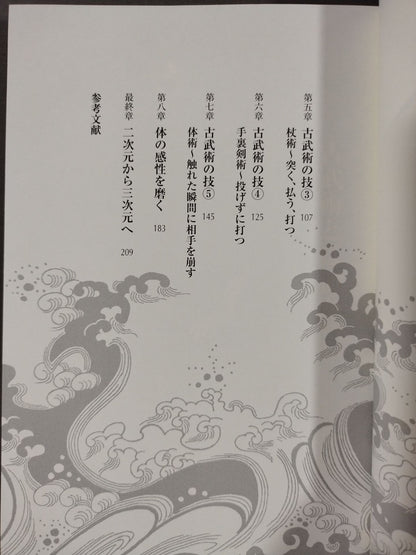 第五章 古武術の技③
杖術~突く、払う、打つ 107
第六章 古武術の技④
手裏剣術~投げずに打つ 125
第七章 古武術の技⑤
体術~触れた瞬間に相手を崩す 145
第八章 体の感性を磨く 183
最終章 二次元から三次元へ 209
参考文献